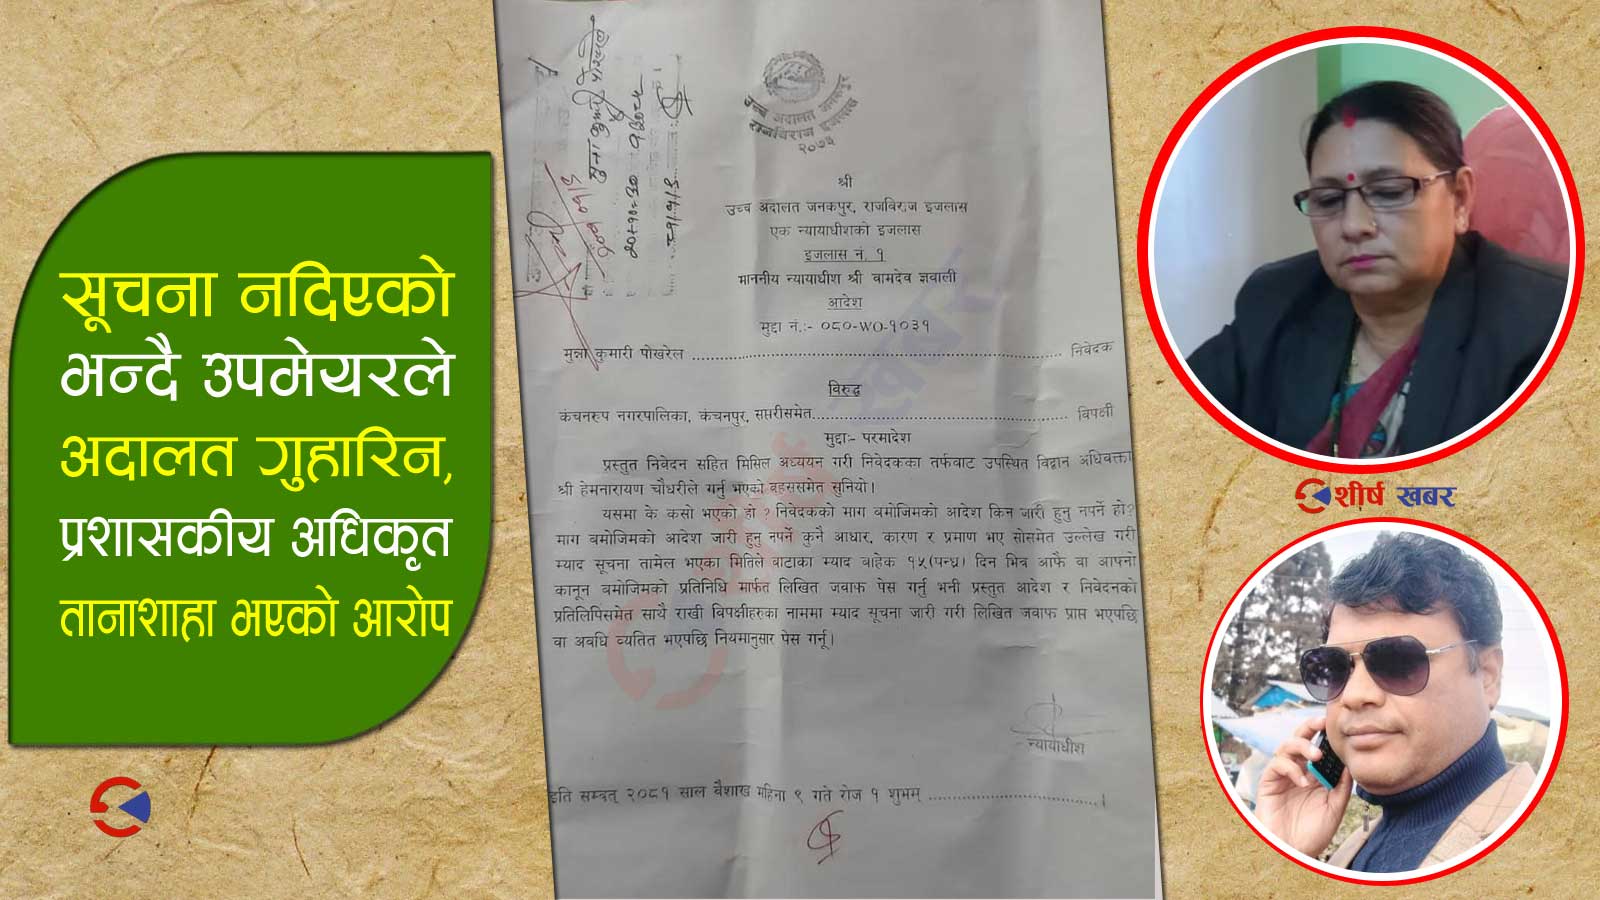 सूचना नदिएको
भन्दै उपमेयरले
अदालत गुहारिन,
प्रशासकीय अधिकृत
तानाशाहा भएको आरोप
उच्च अदालत जनकपुर
राजविराज इजलास
२०७३
श्री
उच्च अदालत जनकपुर, राजविराज इजलास
एक न्यायाधीशको इजलास
इजलास नं. १
माननीय न्यायाधीश श्री वामदेव ज्ञवाली
आदेश
मुद्दा नं.:- ०८०-WO-१०३१
मुन्ना कुमारी पोखरेल ........................................ निवेदक
विरुद्ध
कंचनरुप नगरपालिका, कंचनपुर, सप्तरीसमेत........................................ विपक्षी
मुद्दाः- परमादेश
प्रस्तुत निवेदन सहित मिसिल अध्ययन गरी निवेदकका तर्फबाट उपस्थित विद्वान अधिवक्ता
श्री हेमनारायण चौधरीले गर्नु भएको वहससमेत सुनियो।
यसमा के कसो भएको हो ? निवेदकको माग बमोजिमको आदेश किन जारी हुनु नपर्ने हो?
माग बमोजिमको आदेश जारी हुनु नपर्ने कुनै आधार, कारण र प्रमाण भए सोसमेत उल्लेख गरी
म्याद सूचना तामेल भएका मितिले बाटाका म्याद बाहेक १५(पन्ध्र) दिन भित्र आफै वा आफ्नो
कानून बमोजिमको प्रतिनिधि मार्फत लिखित जवाफ पेस गर्नु भनी प्रस्तुत आदेश र निवेदनको
प्रतिलिपिसमेत साथै राखी विपक्षीहरुका नाममा म्याद सूचना जारी गरी लिखित जवाफ प्राप्त भएपछि
वा अवधि व्यतित भएपछि नियमानुसार पेस गर्नू।
न्यायाधीश
इति सम्वत् २०८१ साल बैशाख महिना ९ गते रोज १ शुभम् ........................................।
शीर्ष खबर